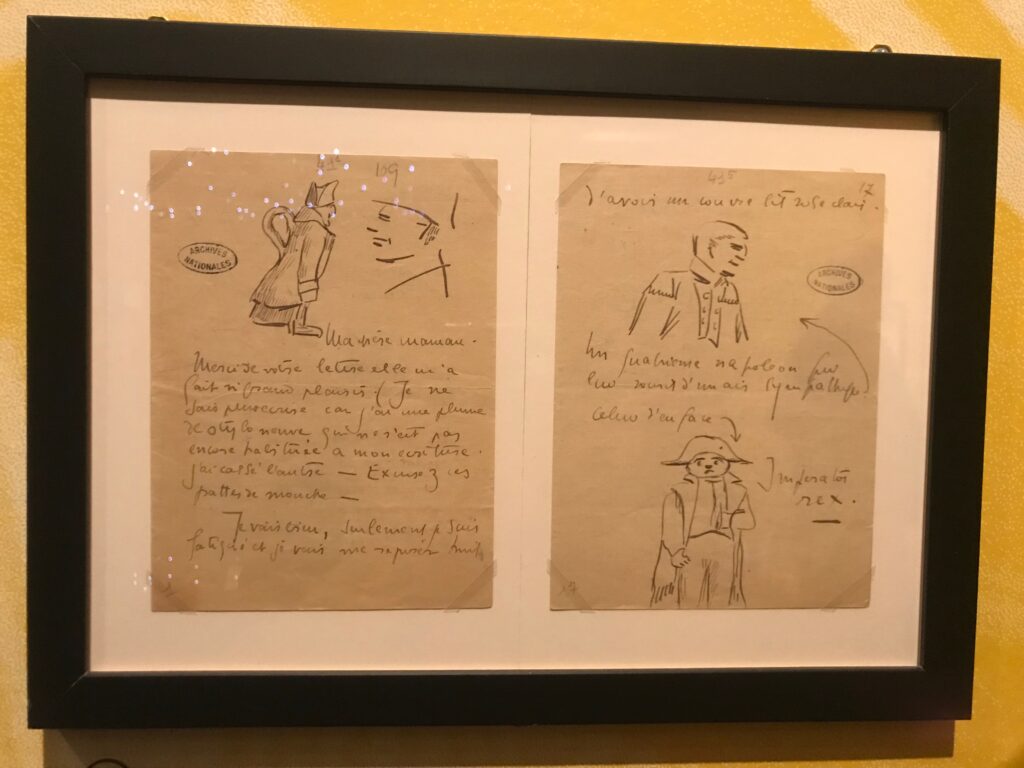 109
ARCHIVES
NATIONALES
Ma chère maman.
Merci de votre lettre elle m'a
fait si grand plaisir. (Je ne
sais pas car j'ai une plume
de stylo neuve qui ne s'est pas
encore habituée à mon écriture.
j'ai cassé l'autre — Excusez ces
pattes de mouche —
Je vais bien, seulement je suis
fatigué et je vais me reposer
415
12
J'avois un couvre lit rose clair.
ARCHIVES
NATIONALES
Un quatrieme napoleon
d'un air sympathique.
celui d'en face
Imperator
rex.